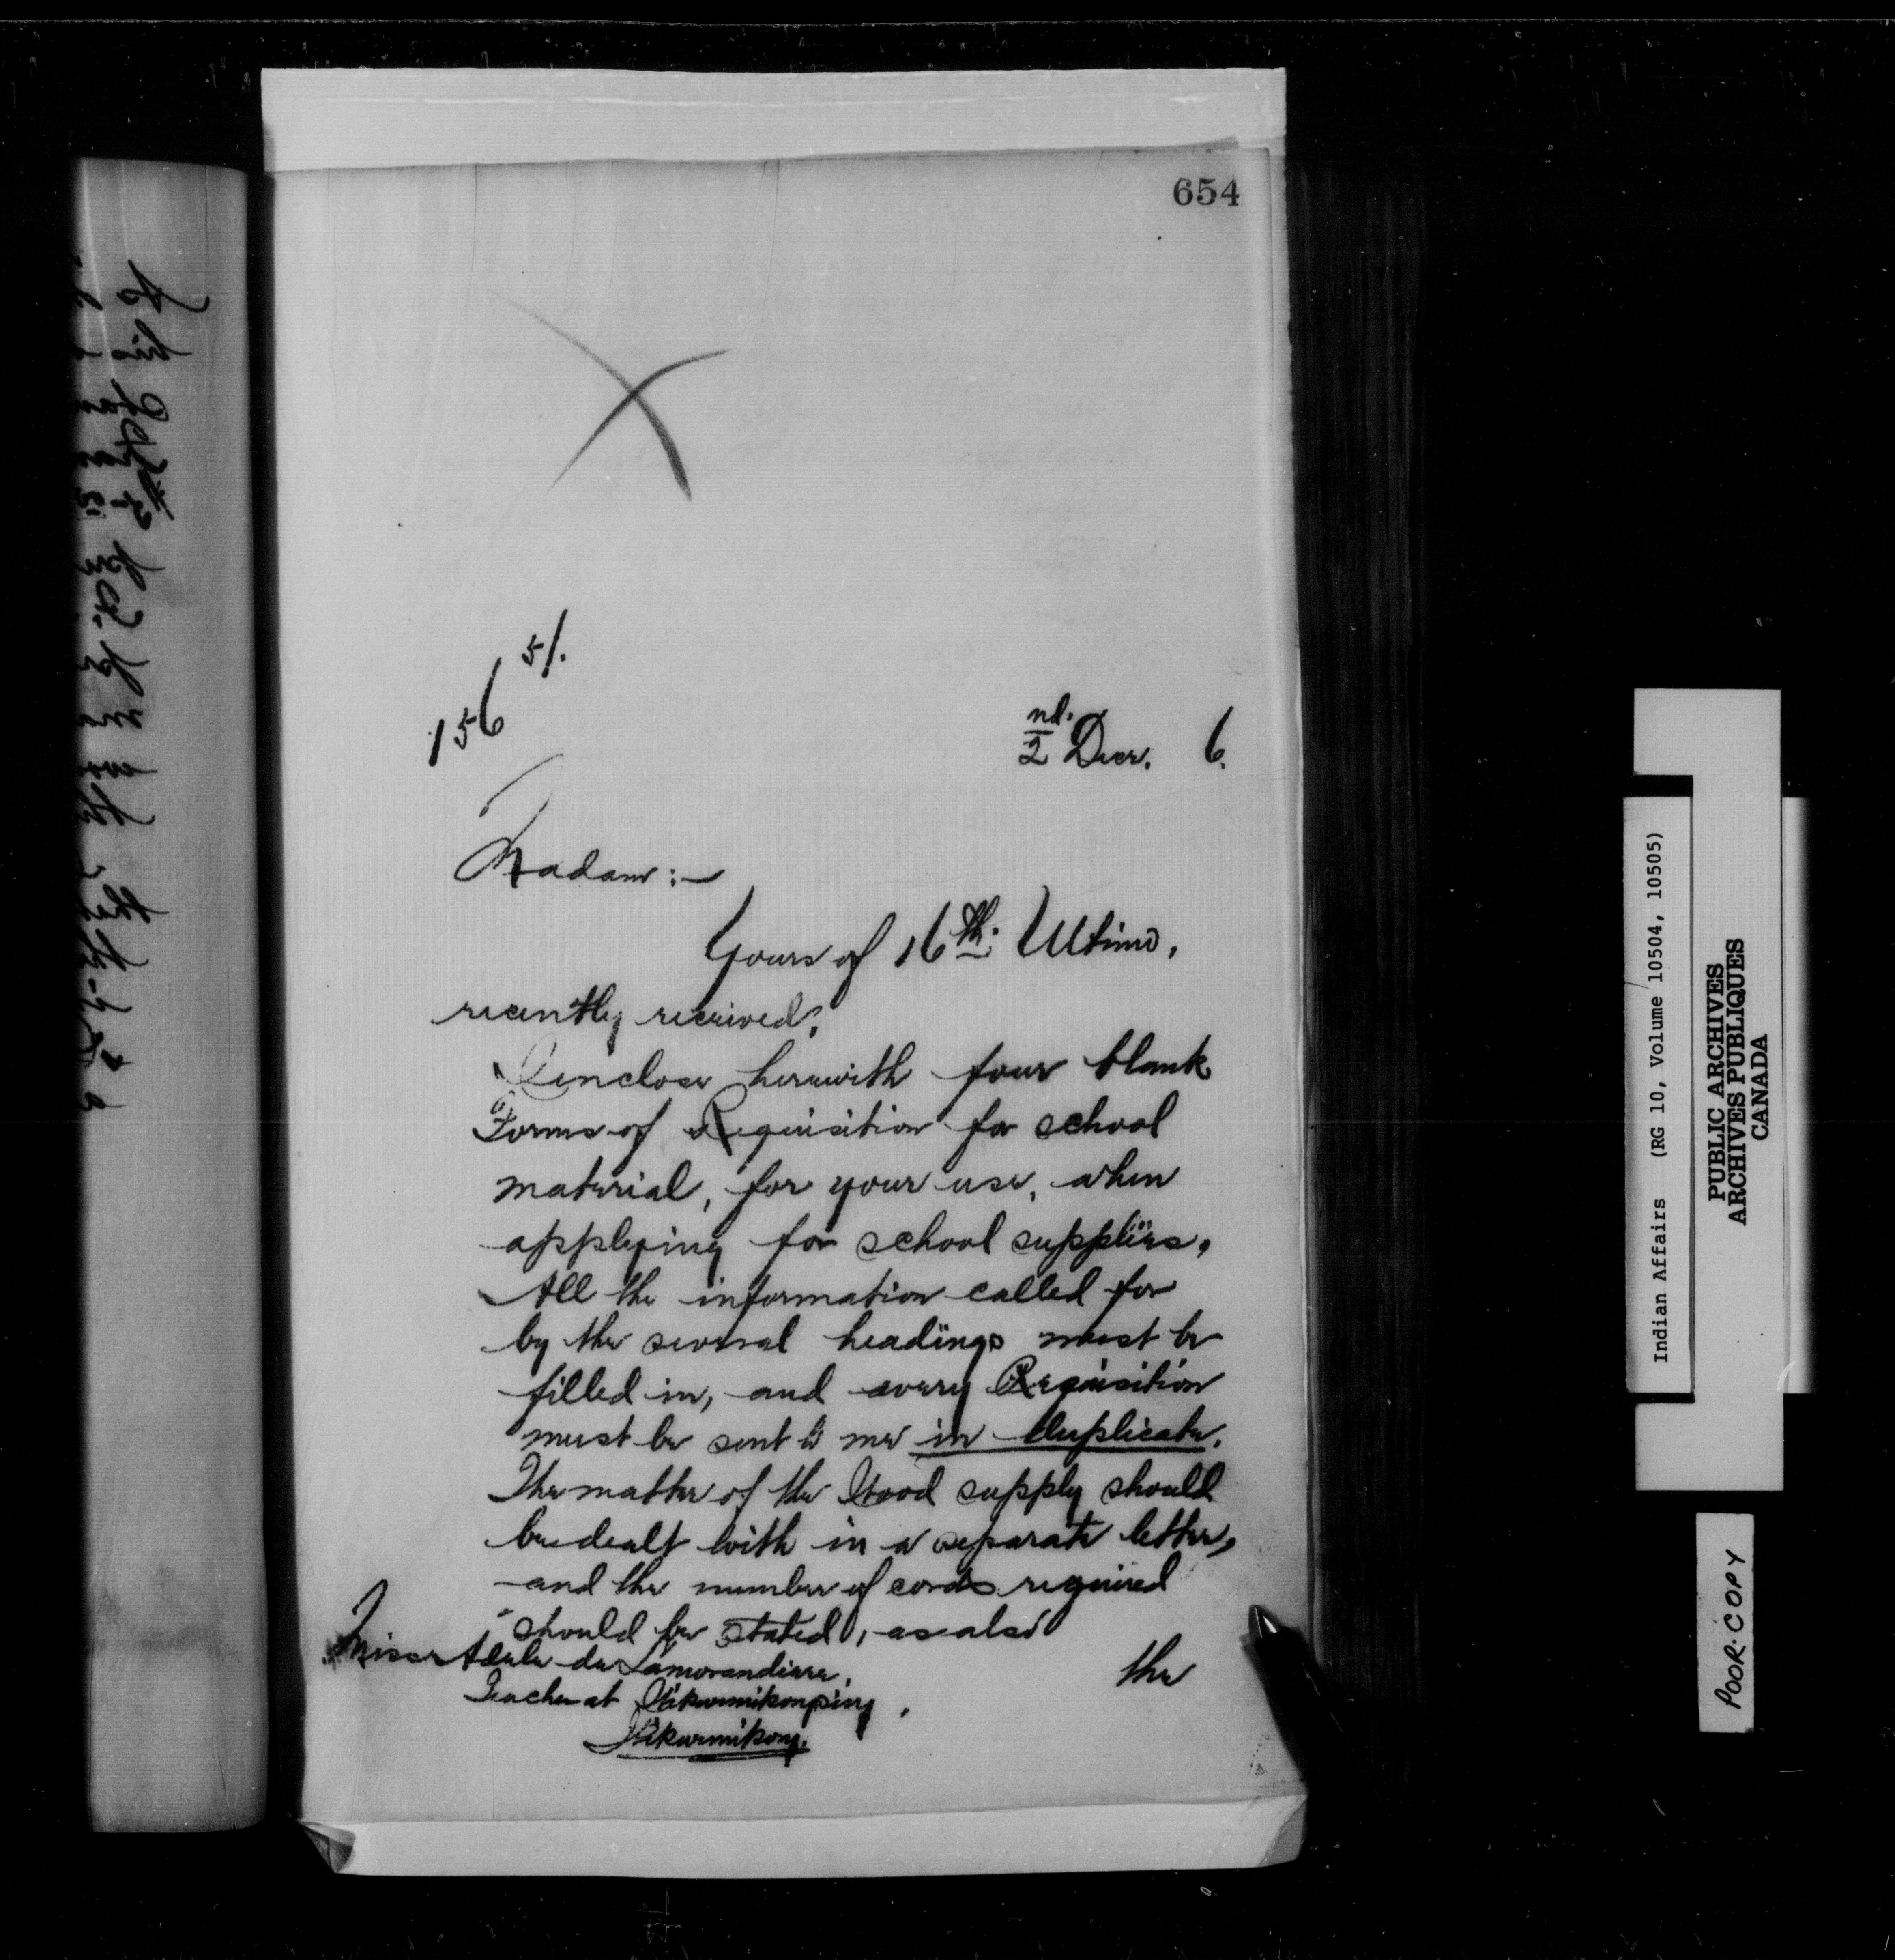 654
156 5/.
2nd. Decr. 6.
Madam :—
Yours of 16th. Ultimo,
recently received.
I enclose herewith four blank
Forms of Requisition for school
material, for your use, when
applying for school supplies.
All the information called for
by the several headings must be
filled in, and every Requisition
must be sent to me in duplicate.
The matter of the Wood supply should
be dealt with in a separate letter,
and the number of cords required
should be stated, as also
the
Miss Adele de Lamorandiere,
Teacher at Wikwemikongsing,
Wikwemikong.
Indian Affairs (RG 10, Volume 10504, 10505)
PUBLIC ARCHIVES
ARCHIVES PUBLIQUES
CANADA
POOR COPY